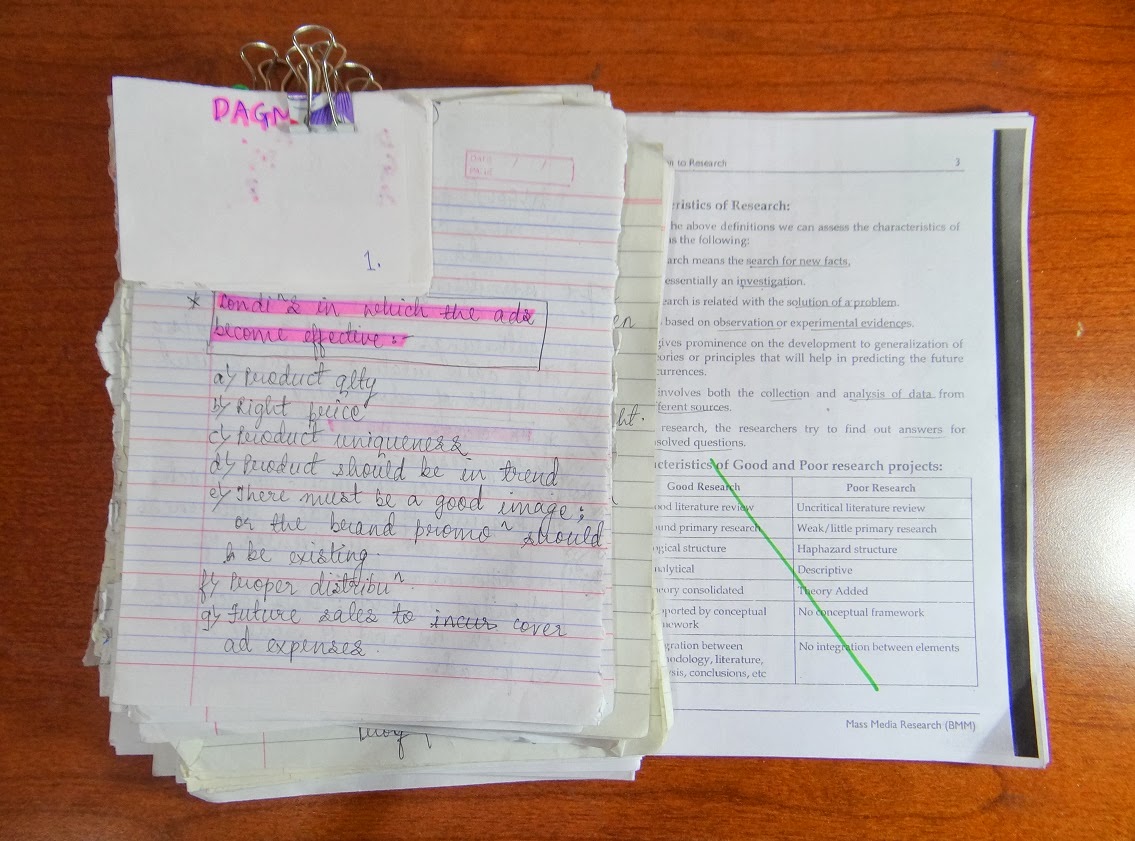 DAGM
1.
DATE / /
PAGE
* Condiⁿs in which the ads
become effective :-
a) Product qlty
b) Right price
c) Product uniqueness
d) Product should be in trend
e) There must be a good image;
or the brand promoⁿ should
be existing.
f) Proper distribuⁿ.
g) Future sales to incur cover
ad expenses.
en
ht.
n to Research 3
ristics of Research:
he above definitions we can assess the characteristics of
s the following:
arch means the search for new facts.
essentially an investigation.
earch is related with the solution of a problem.
based on observation or experimental evidences.
gives prominence on the development to generalization of
ories or principles that will help in predicting the future
urrences.
involves both the collection and analysis of data from
ferent sources.
research, the researchers try to find out answers for
solved questions.
cteristics of Good and Poor research projects:
Good Research Poor Research
ood literature review Uncritical literature review
und primary research Weak/little primary research
ogical structure Haphazard structure
nalytical Descriptive
eory consolidated Theory Added
ported by conceptual No conceptual framework
ework
gration between No integration between elements
odology, literature,
ysis, conclusions, etc
Mass Media Research (BMM)